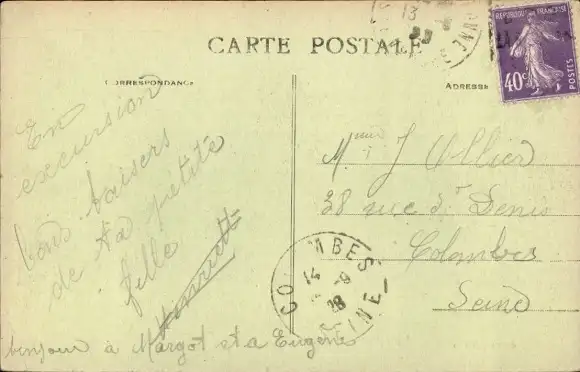 CARTE POSTALE
CORRESPONDANCE
ADRESSE
REPUBLIQUE FRANÇAISE
40c
POSTES
En
excursion
bons baisers
de ta petite
fille
bonjour à Margot et a Eugène
Mme J Ollier
38 rue St Denis
Colombes
Seine
COLOMBES
14
9
28
SEINE
13